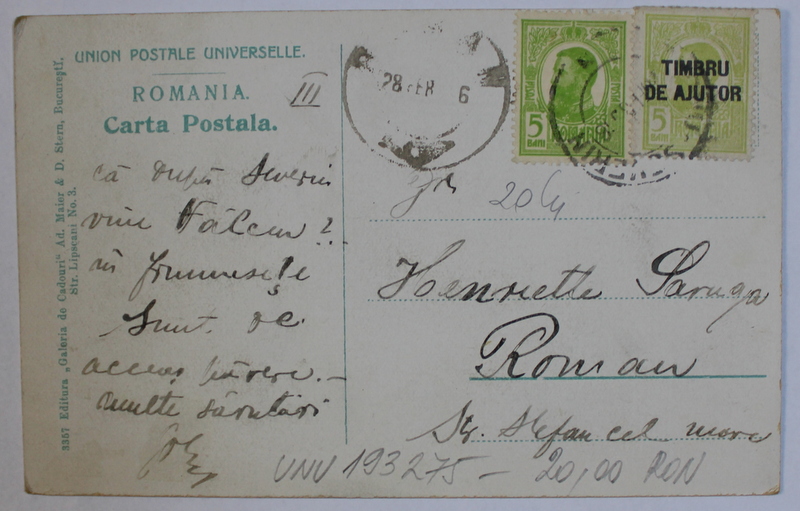 UNION POSTALE UNIVERSELLE.
ROMANIA.
III
Carta Postala.
3357 Editura „Galeria de Cadouri" Ad. Maier & D. Stern, Bucureștĭ,
Str. Lipscani No. 3.
28 FEB 6
5 BANI
TIMBRU
DE AJUTOR
5
că după Severin
vine Fălciu?
frumusețe
Sunt de
aceeaș părere. –
multe sărutări
20
Henriette Saruga
Roman
Str. Stefan cel mare
VNV 193275 – 20,00 RON